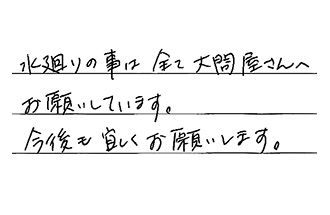 水廻りの事は全て大問屋さんへ
お願いしています。
今後も宜しくお願いします。